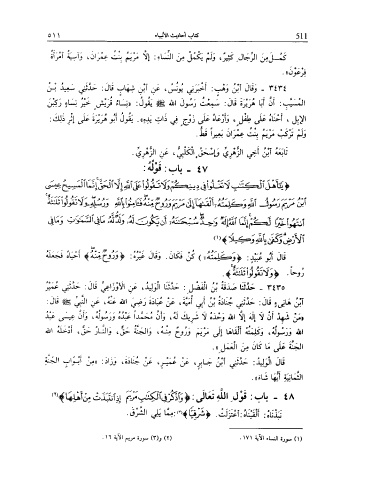 ٥١١ كتاب أحاديث الأنبياء 511
كَمُلَ مِنَ الرِّجَالِ كَثِيرٌ، وَلَمْ يَكْمُلْ مِنَ النِّسَاءِ: إلَّا مَرْيَمُ بِنْتُ عِمْرَانَ، وَآسِيَةُ امْرَأَةُ
فِرْعَوْنَ».
٣٤٣٤ - وَقَالَ ابْنُ وَهْبٍ: أَخْبَرَنِي يُونُسُ، عَنِ ابْنِ شِهَابٍ قَالَ: حَدَّثَنِي سَعِيدُ بْنُ
المُسَيَّبِ: أَنَّ أَبَا هُرَيْرَةَ قَالَ: سَمِعْتُ رَسُولَ اللهِ ﷺ يَقُولُ: «نِسَاءُ قُرَيْشٍ خَيْرُ نِسَاءٍ رَكِبْنَ
الإِبِلَ، أَحْنَاهُ عَلَى طِفْلٍ، وَأَرْعَاهُ عَلَى زَوْجٍ فِي ذَاتِ يَدِهِ». يَقُولُ أَبُو هُرَيْرَةَ عَلَى إِثْرِ ذَلِكَ:
وَلَمْ تَرْكَبْ مَرْيَمُ بِنْتُ عِمْرَانَ بَعِيراً قَطُّ.
تَابَعَهُ ابْنُ أَخِي الزُّهْرِيِّ وَإِسْحَقُ الْكَلْبِيُّ، عَنِ الزُّهْرِيِّ.
٤٧ - باب: قَوْلُهُ:
﴿يَٰٓأَهْلَ ٱلْكِتَٰبِ لَا تَغْلُوا۟ فِى دِينِكُمْ وَلَا تَقُولُوا۟ عَلَى ٱللَّهِ إِلَّا ٱلْحَقَّ إِنَّمَا ٱلْمَسِيحُ عِيسَى
ٱبْنُ مَرْيَمَ رَسُولُ ٱللَّهِ وَكَلِمَتُهُۥٓ أَلْقَىٰهَآ إِلَىٰ مَرْيَمَ وَرُوحٌ مِّنْهُ فَـَٔامِنُوا۟ بِٱللَّهِ وَرُسُلِهِۦ وَلَا تَقُولُوا۟ ثَلَٰثَةٌ
ٱنتَهُوا۟ خَيْرًا لَّكُمْ إِنَّمَا ٱللَّهُ إِلَٰهٌ وَٰحِدٌ سُبْحَٰنَهُۥٓ أَن يَكُونَ لَهُۥ وَلَدٌ لَّهُۥ مَا فِى ٱلسَّمَٰوَٰتِ وَمَا فِى
ٱلْأَرْضِ وَكَفَىٰ بِٱللَّهِ وَكِيلًا﴾(١)
قَالَ أَبُو عُبَيْدٍ: ﴿وَكَلِمَتُهُ﴾ كُنْ فَكَانَ. وَقَالَ غَيْرُهُ: ﴿وَرُوحٌ مِنْهُ﴾ أَحْيَاهُ فَجَعَلَهُ
رُوحاً. ﴿وَلَا تَقُولُوا ثَلَٰثَةٌ﴾.
٣٤٣٥ - حَدَّثَنَا صَدَقَةُ بْنُ الْفَضْلِ: حَدَّثَنَا الْوَلِيدُ، عَنِ الأَوْزَاعِيِّ قَالَ: حَدَّثَنِي عُمَيْرُ
ابْنُ هَانِئٍ قَالَ: حَدَّثَنِي جُنَادَةُ بْنُ أَبِي أُمَيَّةَ، عَنْ عُبَادَةَ رَضِيَ اللهُ عَنْهُ، عَنِ النَّبِيِّ ﷺ قَالَ:
«مَنْ شَهِدَ أَنْ لَا إِلَهَ إِلَّا اللهُ وَحْدَهُ لَا شَرِيكَ لَهُ، وَأَنَّ مُحَمَّداً عَبْدُهُ وَرَسُولُهُ، وَأَنَّ عِيسَى عَبْدُ
اللهِ وَرَسُولُهُ، وَكَلِمَتُهُ أَلْقَاهَا إِلَى مَرْيَمَ وَرُوحٌ مِنْهُ، وَالجَنَّةُ حَقٌّ، وَالنَّارُ حَقٌّ، أَدْخَلَهُ اللهُ
الجَنَّةَ عَلَى مَا كَانَ مِنَ الْعَمَلِ».
قَالَ الْوَلِيدُ: حَدَّثَنِي ابْنُ جَابِرٍ، عَنْ عُمَيْرٍ، عَنْ جُنَادَةَ، وَزَادَ: «مِنْ أَبْوَابِ الجَنَّةِ
الثَّمَانِيَةِ أَيَّهَا شَاءَ».
٤٨ - باب: قَوْلِ اللهِ تَعَالَى: ﴿وَٱذْكُرْ فِى ٱلْكِتَٰبِ مَرْيَمَ إِذِ ٱنتَبَذَتْ مِنْ أَهْلِهَا﴾(٢)
نَبَذْنَاهُ: أَلْقَيْنَاهُ: اعْتَزَلَتْ. ﴿شَرْقِيًّا﴾(٣): مِمَّا يَلِي الشَّرْقَ.
(١) سورة النساء الآية ١٧١. (٢) و(٣) سورة مريم الآية ١٦.